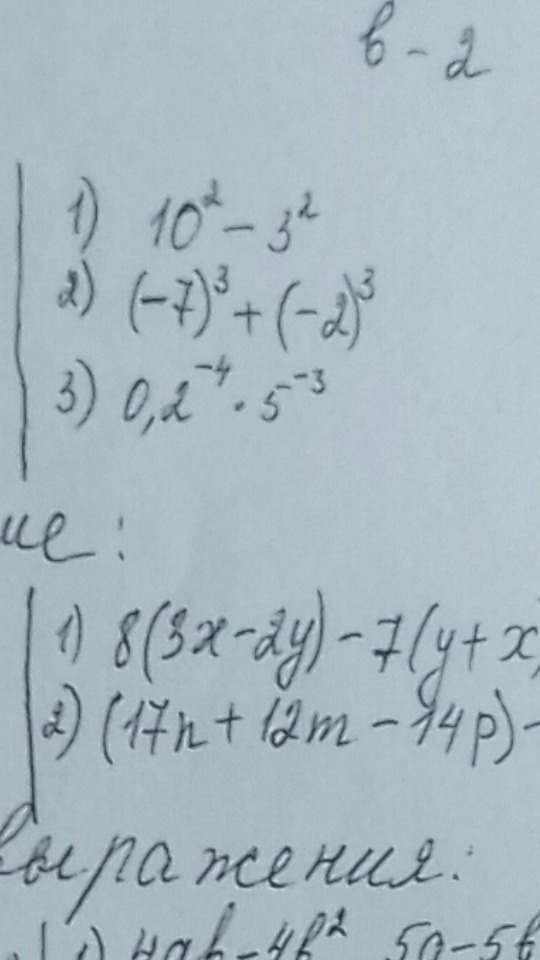 в - 2
1) 10² - 3²
2) (-7)³ + (-2)³
3) 0,2⁻⁴ · 5⁻³
ие:
1) 8(3x - 2y) - 7(y + x)
2) (17n + 12m - 14p) -
выражения:
1) 4ab - 4b² 5a - 5b